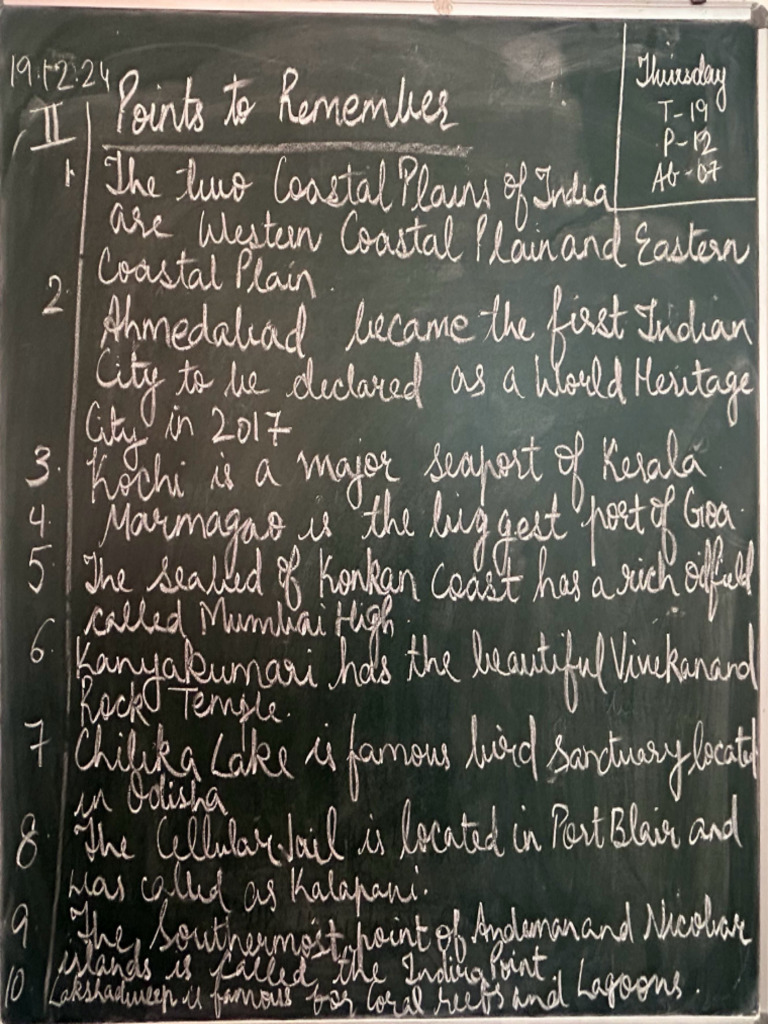 19.12.24
Thursday
T-19
P-12
Ab-07
II Points to Remember
1 The two Coastal Plains of India
are Western Coastal Plain and Eastern
Coastal Plain.
2. Ahmedabad became the first Indian
City to be declared as a World Heritage
City in 2017
3. Kochi is a major seaport of Kerala.
4 Marmagao is the biggest port of Goa.
5 The seabed of Konkan Coast has a rich oilfield
called Mumbai High.
6 Kanyakumari has the beautiful Vivekanand
Rock Temple.
7 Chilika Lake is famous bird sanctuary located
in Odisha
8 The Cellular Jail is located in Port Blair and
was called as Kalapani.
9 The Southernmost point of Andeman and Nicobar
islands is called the Indira Point.
10 Lakshadweep is famous for Coral reefs and Lagoons.